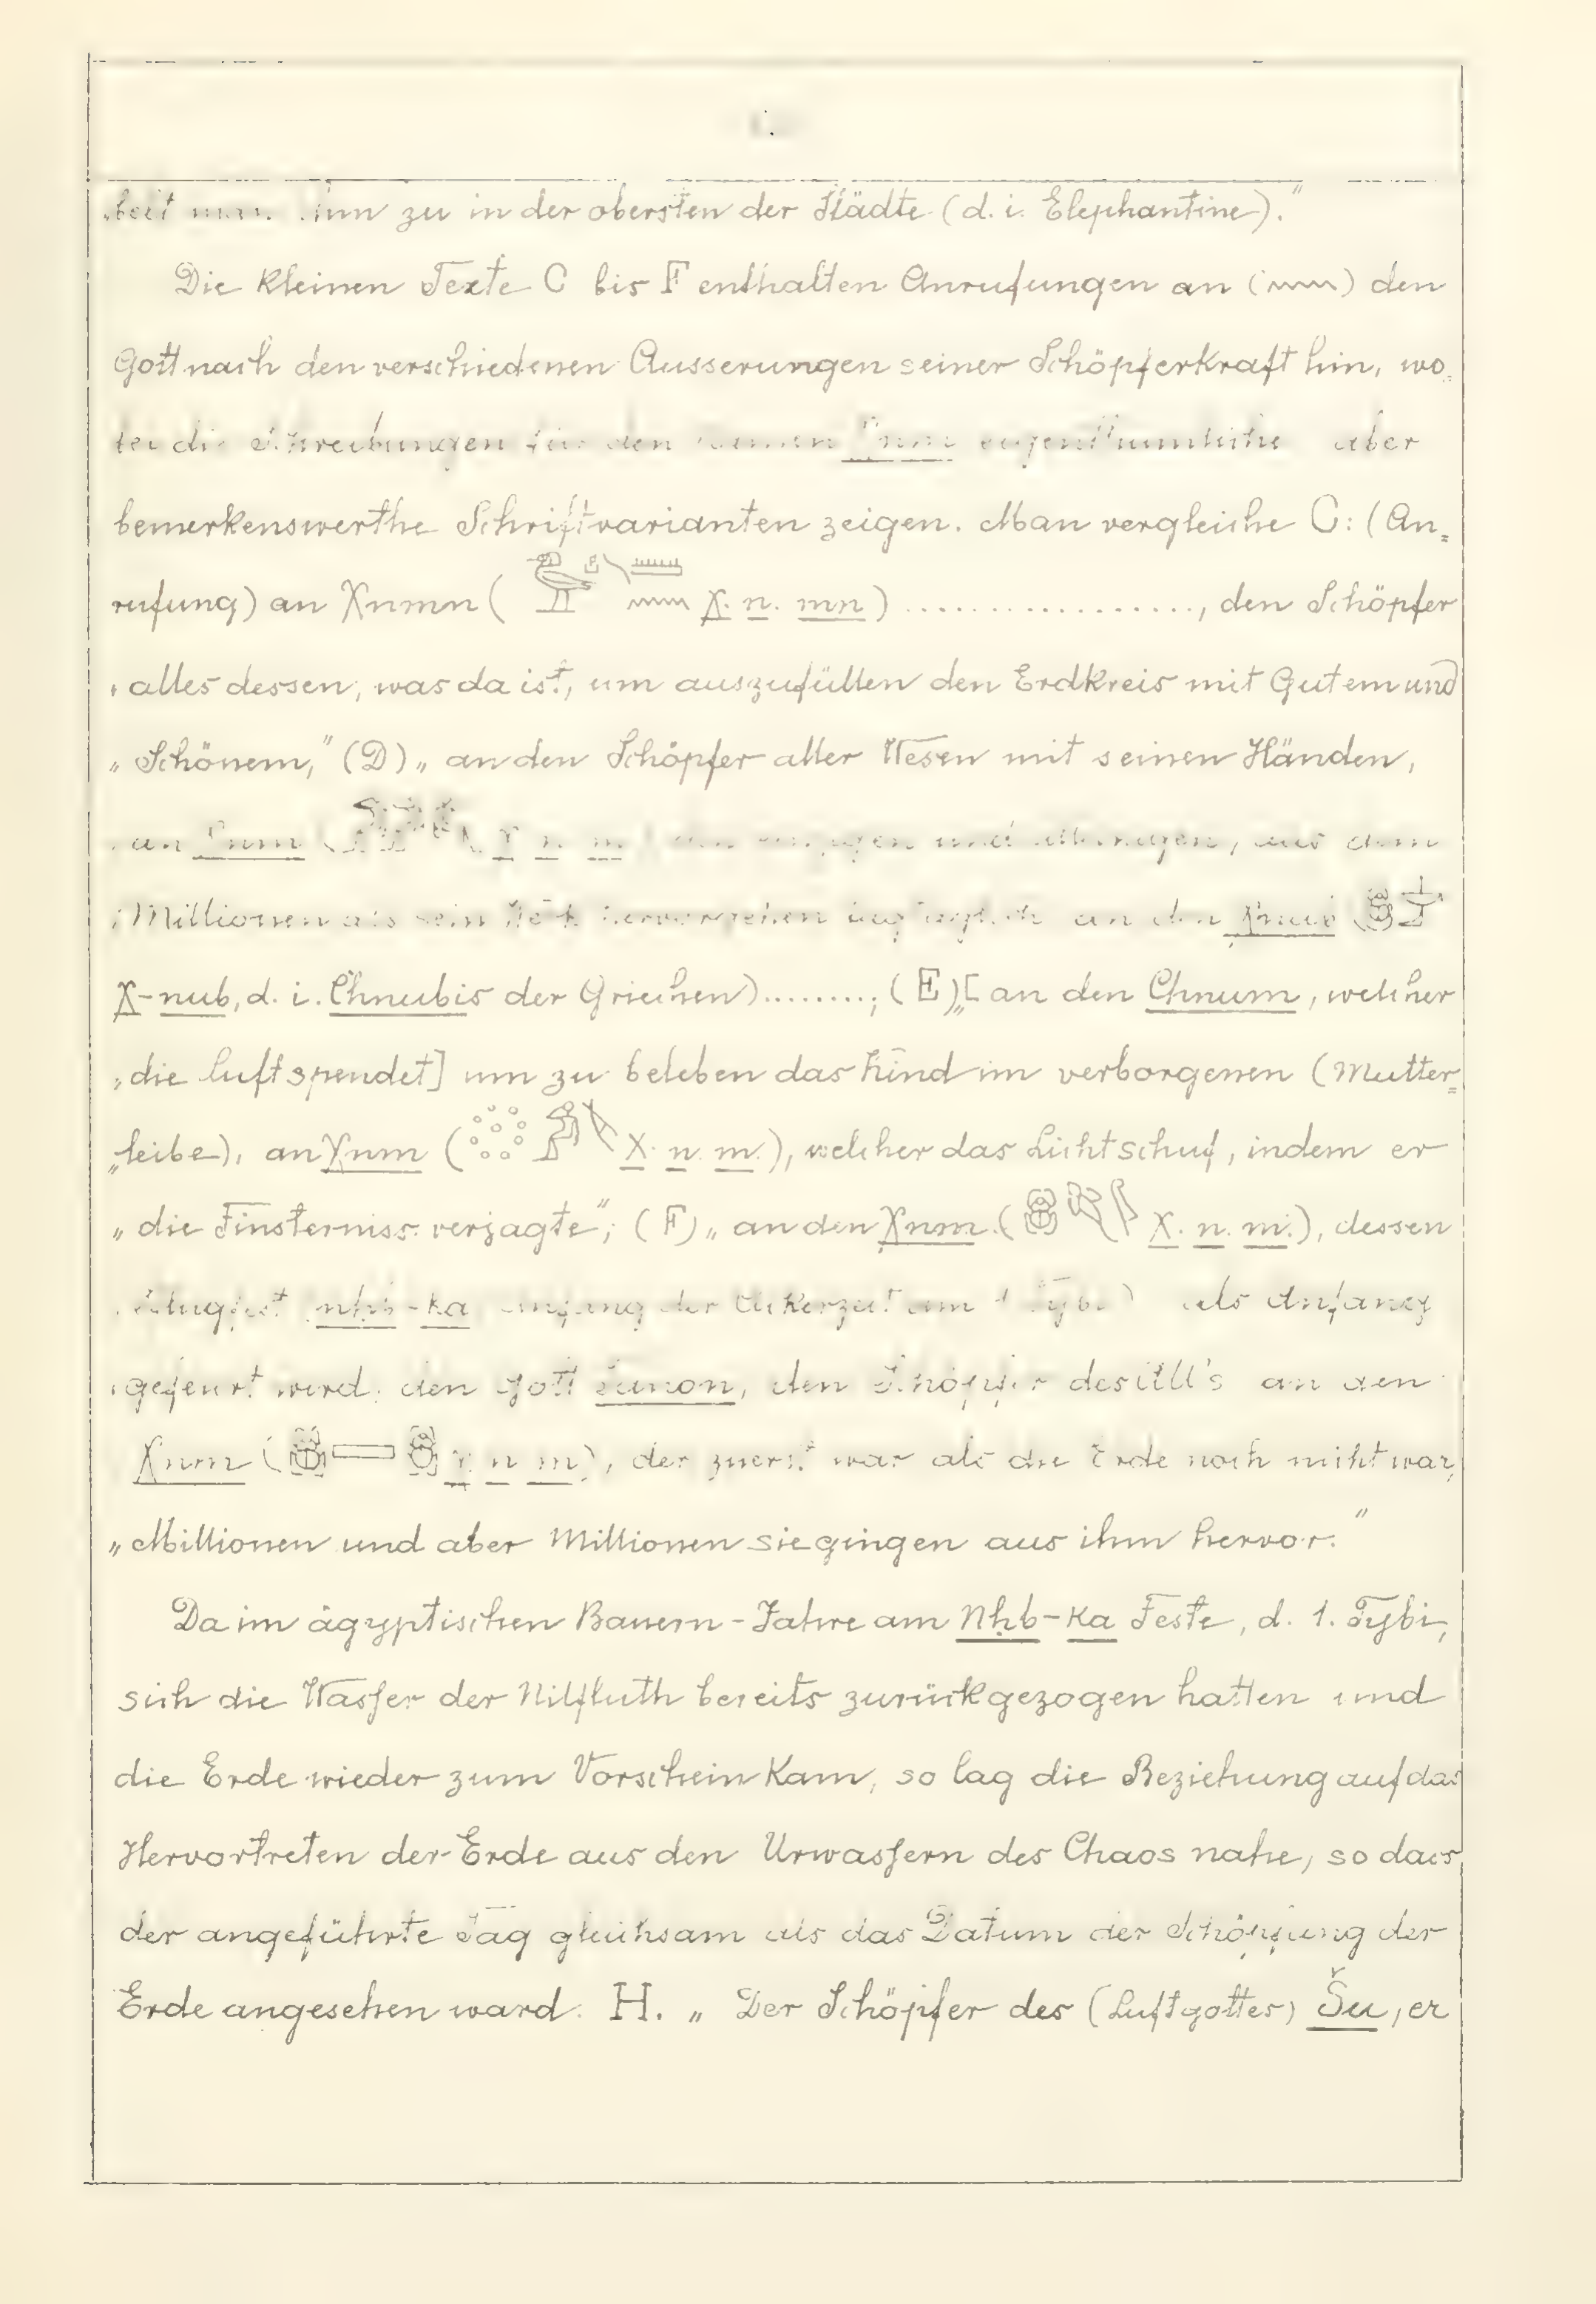 zu in der obersten der Städte (d. i. Elephantine)."
Die kleinen Texte C bis F enthalten Anrufungen an (𓈖) den
Gott nach den verschiedenen Äusserungen seiner Schöpferkraft hin, wo-
bei die Schreibungen für den Namen eigenthümliche aber
bemerkenswerthe Schriftvarianten zeigen. Man vergleiche C: (An=
rufung) an Xnmn ( X. n. mn) .................., den Schöpfer
„alles dessen, was da ist, um auszufüllen den Erdkreis mit Gutem und
„Schönem," (D) „an den Schöpfer aller Wesen mit seinen Händen,
„an Xnm ( X n m) und , aus dem
„Millionen als sein hervorgehen an den Xnub (
X-nub, d. i. Chnubis der Griechen).........; (E) „[an den Chnum, welcher
„die Luft spendet] um zu beleben das Kind im verborgenen (Mutter=
„leibe), an Xnm ( X. n. m.), welcher das Licht schuf, indem er
„die Finsterniss verjagte"; (F) „an den Xnm ( X. n. m.), dessen
nhb-ka Anfang der Ackerzeit am 1 Tybi) als Anfang
„gefeiert wird, den Gott , den Schöpfer des All's an den
Xnm ( X n m), der zuerst war als die Erde noch nicht war,
„Millionen und aber Millionen sie gingen aus ihm hervor."
Da im ägyptischen Bauern-Jahre am Nhb-ka Feste, d. 1. Tybi,
sich die Wasser der Nilfluth bereits zurückgezogen hatten und
die Erde wieder zum Vorschein kam, so lag die Beziehung auf das
Hervortreten der Erde aus den Urwassern des Chaos nahe, so dass
der angeführte Tag gleichsam als das Datum der Schöpfung der
Erde angesehen ward. H. „Der Schöpfer des (Luftgottes) Šu, er